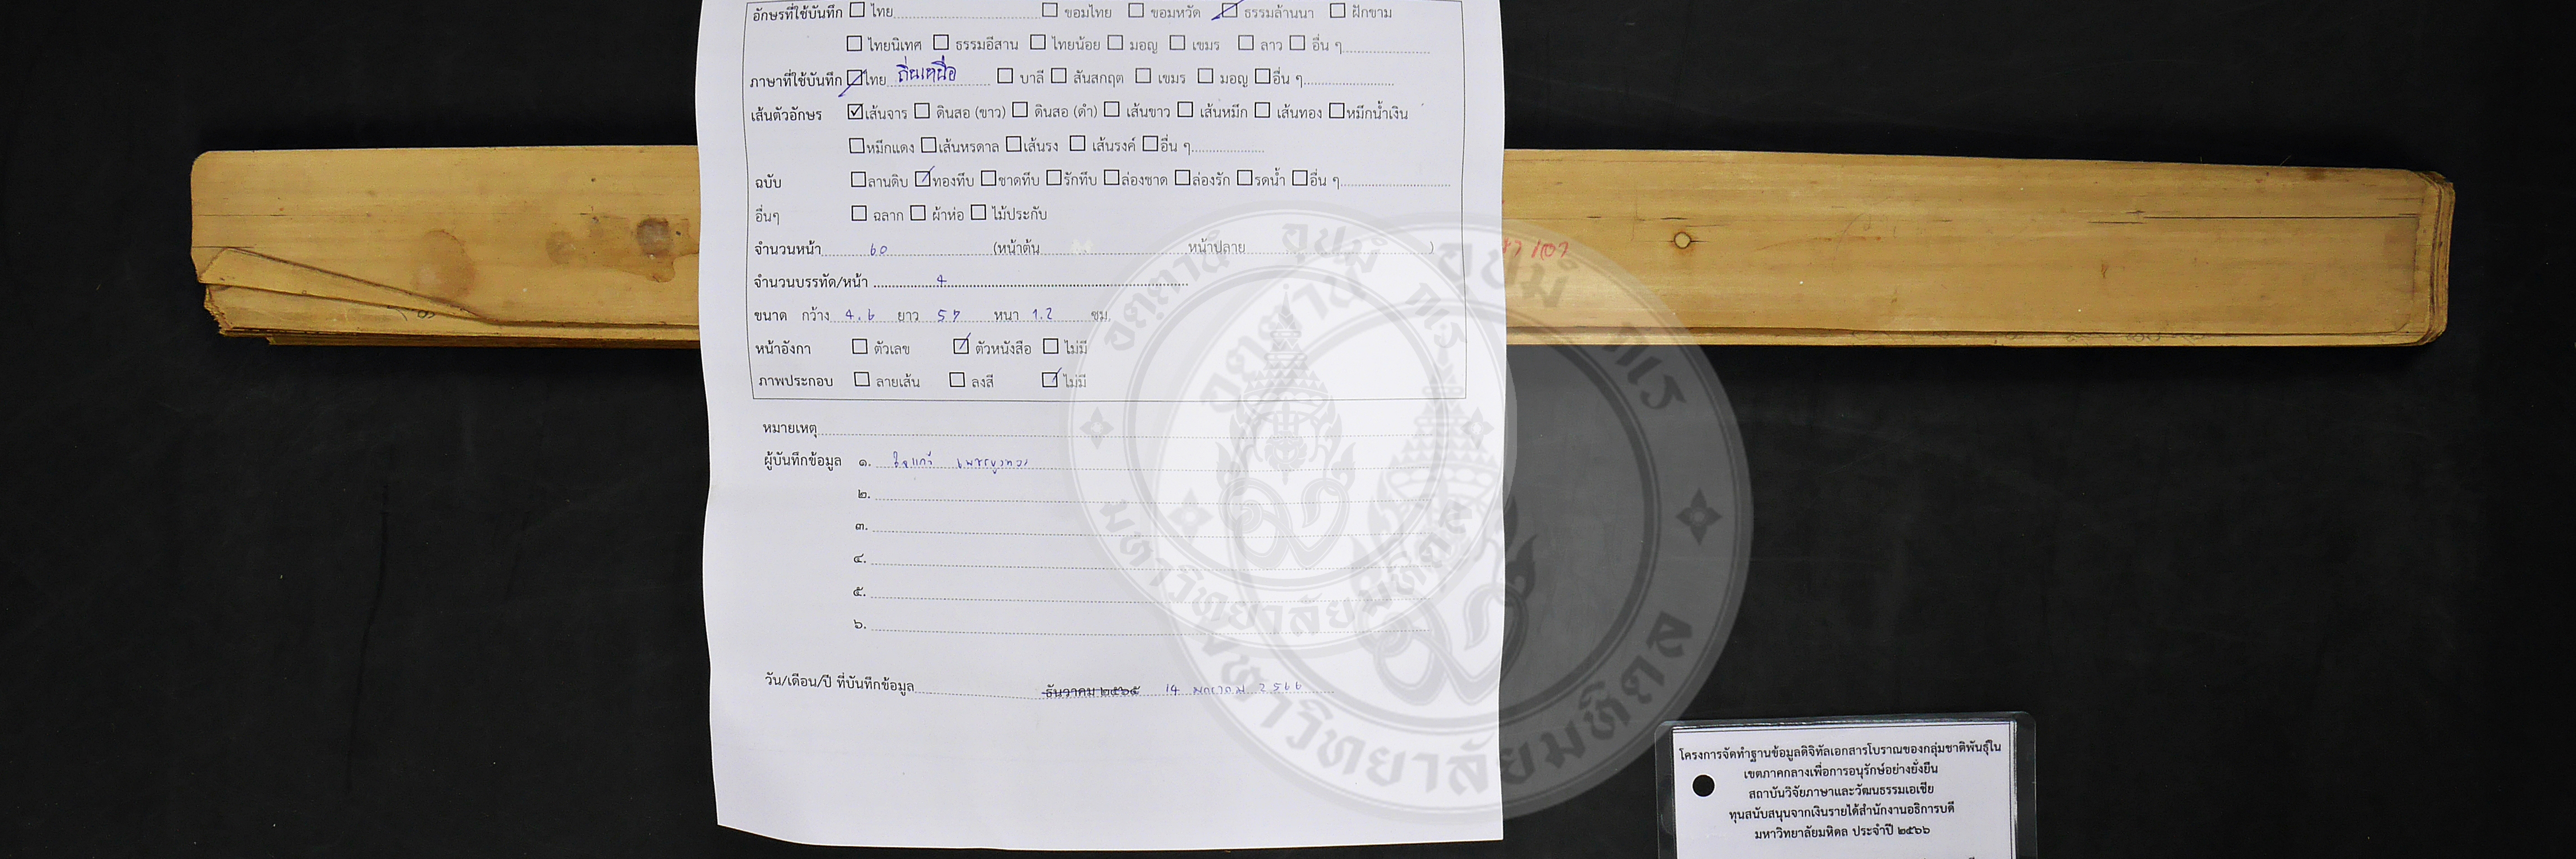 อักษรที่ใช้บันทึก ☐ ไทย ☐ ขอมไทย ☐ ขอมหวัด ☑ ธรรมล้านนา ☐ ฝักขาม
☐ ไทยนิเทศ ☐ ธรรมอีสาน ☐ ไทยน้อย ☐ มอญ ☐ เขมร ☐ ลาว ☐ อื่น ๆ
ภาษาที่ใช้บันทึก ☑ ไทย ถิ่นเหนือ ☐ บาลี ☐ สันสกฤต ☐ เขมร ☐ มอญ ☐ อื่น ๆ
เส้นตัวอักษร ☑ เส้นจาร ☐ ดินสอ (ขาว) ☐ ดินสอ (ดำ) ☐ เส้นขาว ☐ เส้นหมึก ☐ เส้นทอง ☐ หมึกน้ำเงิน
☐ หมึกแดง ☐ เส้นหรดาล ☐ เส้นรง ☐ เส้นรงค์ ☐ อื่น ๆ
ฉบับ ☐ ลานดิบ ☑ ทองทึบ ☐ ชาดทึบ ☐ รักทึบ ☐ ล่องชาด ☐ ล่องรัก ☐ รดน้ำ ☐ อื่น ๆ
อื่นๆ ☐ ฉลาก ☐ ผ้าห่อ ☐ ไม้ประกับ
จำนวนหน้า 60 (หน้าต้น หน้าปลาย )
จำนวนบรรทัด/หน้า 4
ขนาด กว้าง 4.6 ยาว 57 หนา 1.2 ซม.
หน้าอังกา ☐ ตัวเลข ☑ ตัวหนังสือ ☐ ไม่มี
ภาพประกอบ ☐ ลายเส้น ☐ ลงสี ☑ ไม่มี
หมายเหตุ
ผู้บันทึกข้อมูล ๑.
๒.
๓.
๔.
๕.
๖.
วัน/เดือน/ปี ที่บันทึกข้อมูล ธันวาคม ๒๕๖๕ 14 มกราคม 2566
อตฺตานํ อุปมํ กเร
มหาวิทยาลัยมหิดล
โครงการจัดทำฐานข้อมูลดิจิทัลเอกสารโบราณของกลุ่มชาติพันธุ์ใน
เขตภาคกลางเพื่อการอนุรักษ์อย่างยั่งยืน
สถาบันวิจัยภาษาและวัฒนธรรมเอเชีย
ทุนสนับสนุนจากเงินรายได้สำนักงานอธิการบดี
มหาวิทยาลัยมหิดล ประจำปี ๒๕๖๖